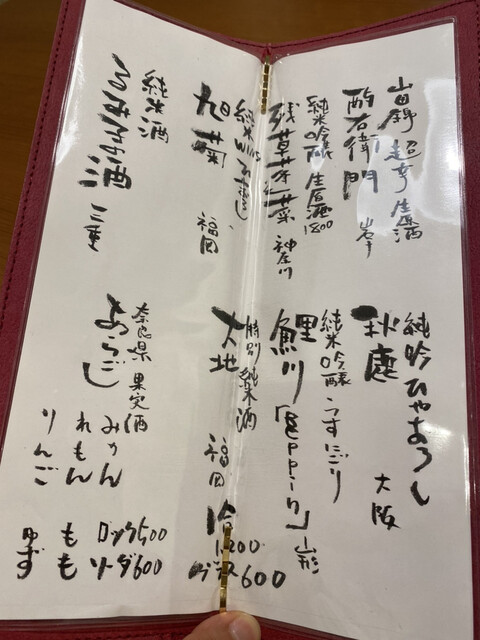 山田錦 超辛 生原酒
酉右衛門 岩手
純米吟醸 生原酒
1800
残草蓬莱 神奈川
純米
旭菊 福岡
純米酒
るみ子の酒 三重
純吟ひやおろし
秋鹿 大阪
純米吟醸 うすにごり
鯉川「Beppin」山形
特別純米酒
大地 福岡
冷
1,200
グラス600
奈良県 果実酒
あらごし
みかん
れもん
りんご
ロック500
ソーダ600
もも
ゆず